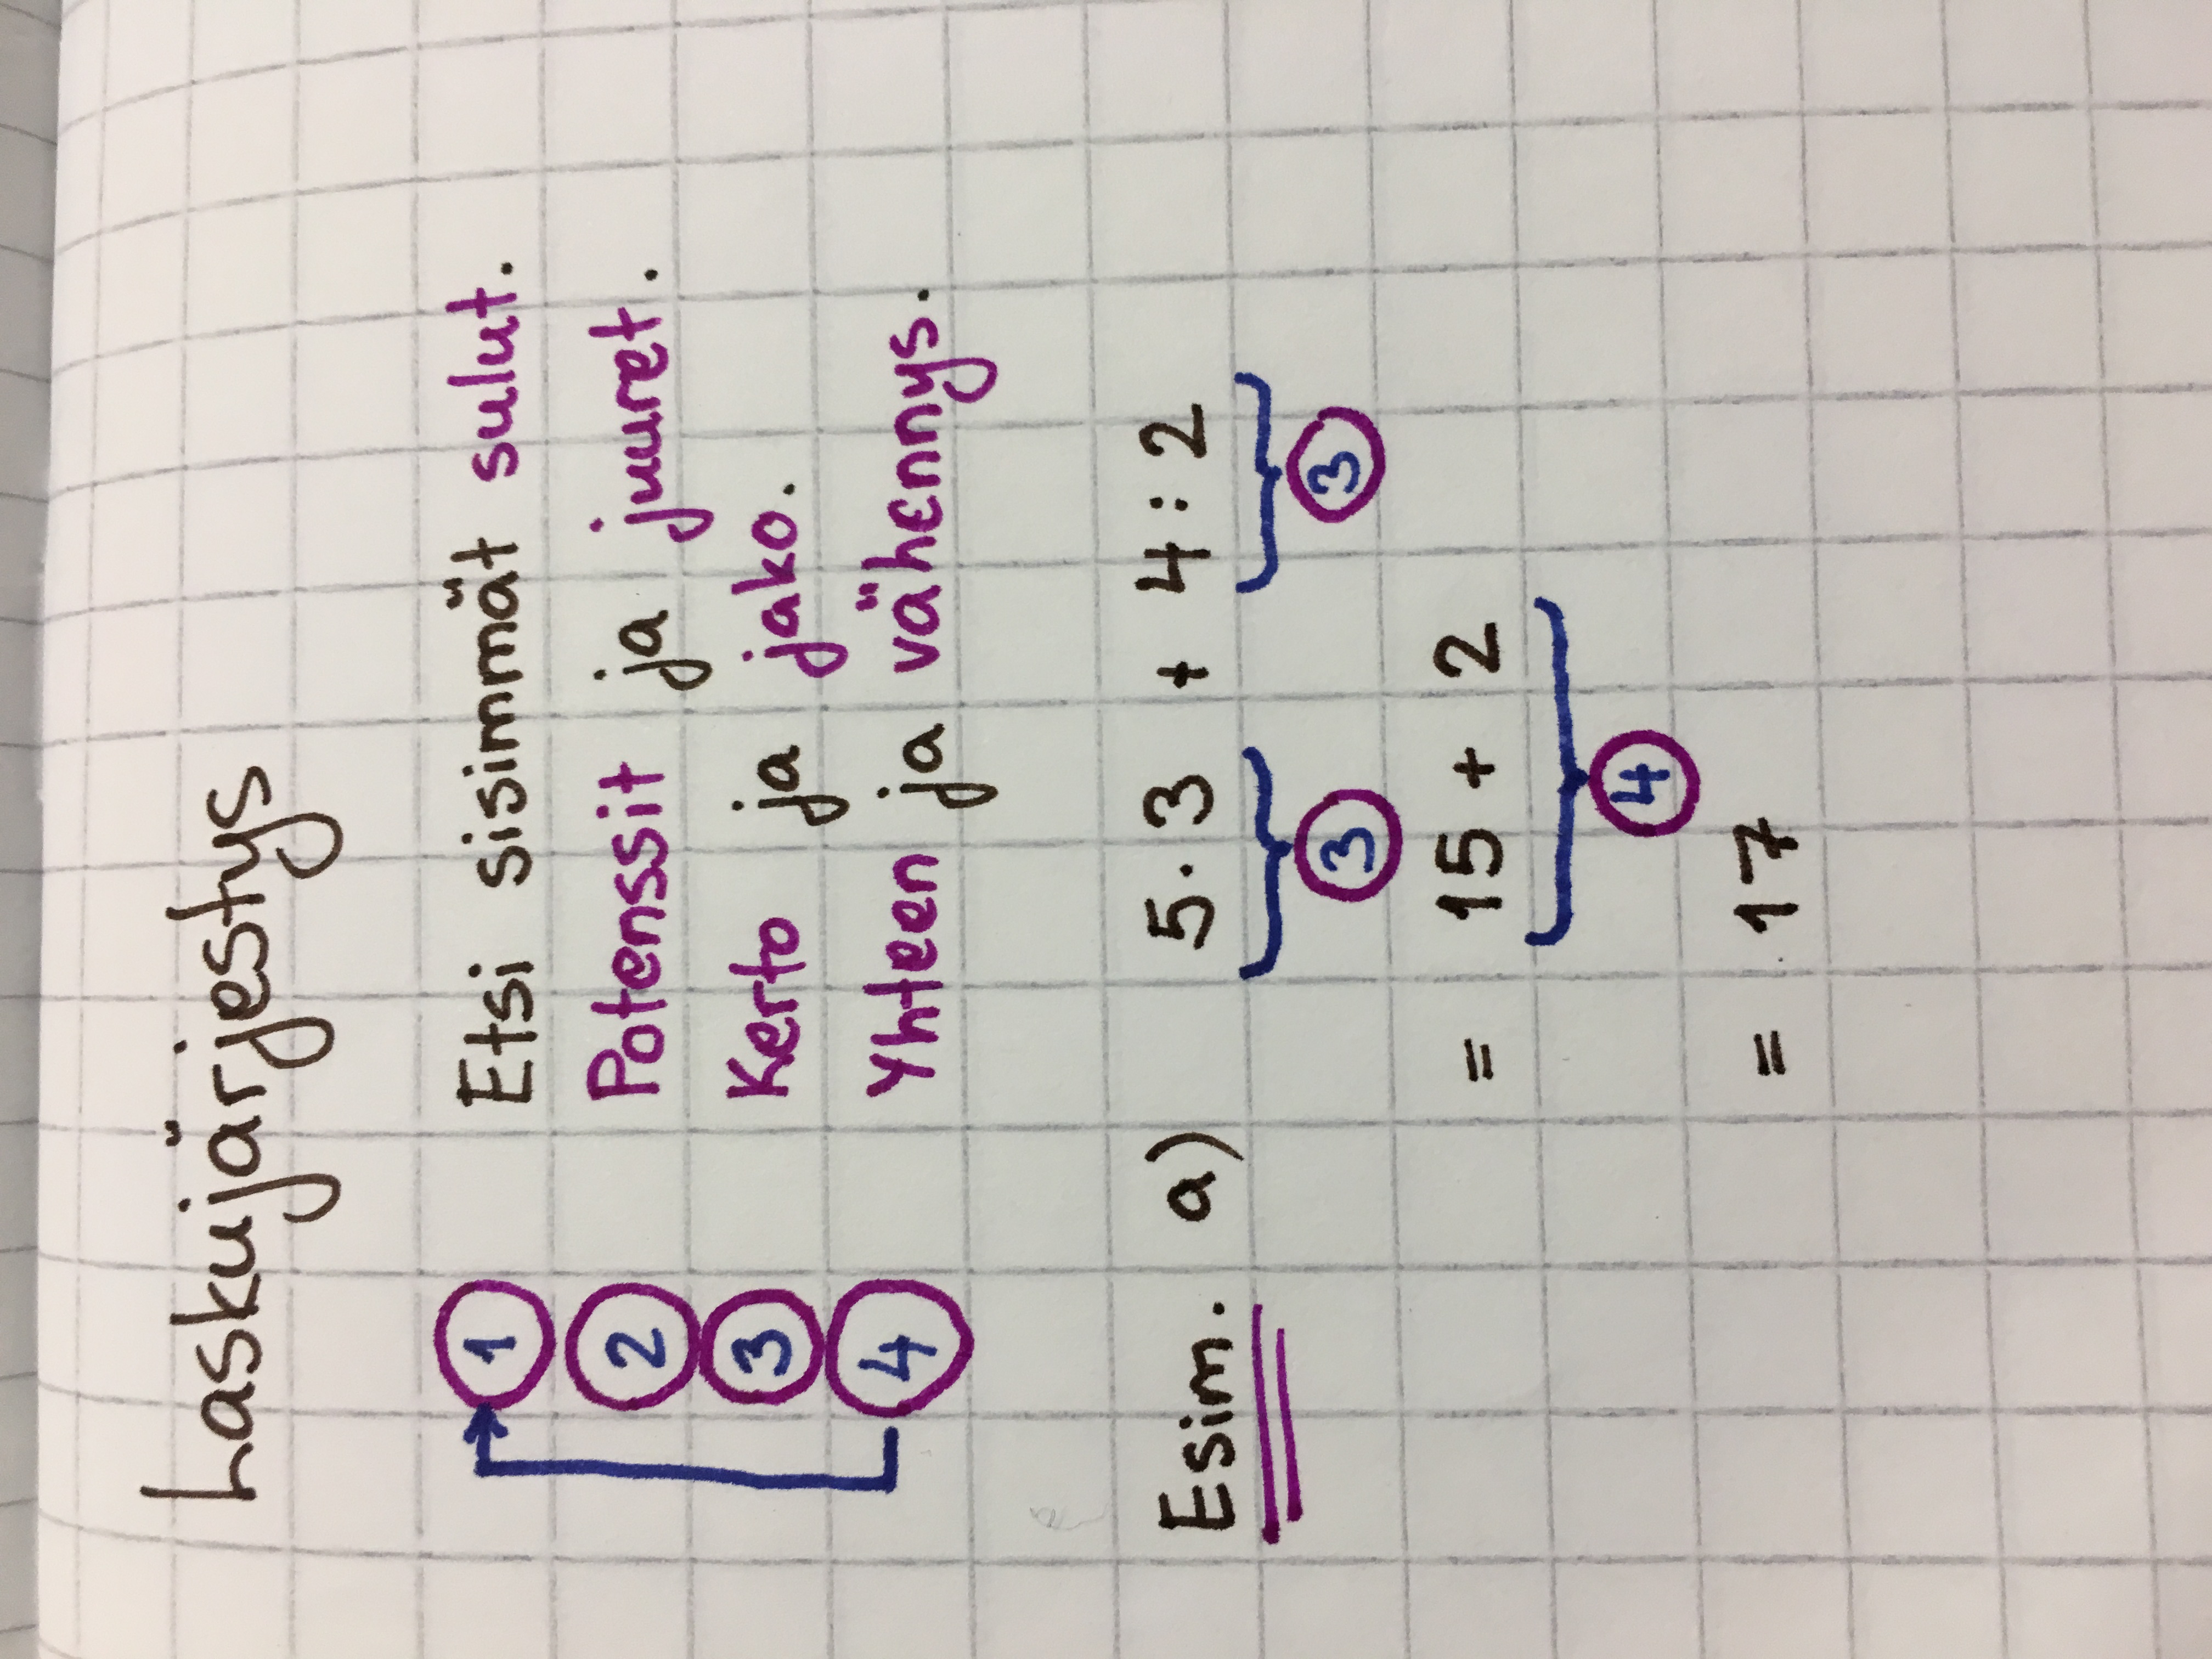 Laskujärjestys
1 Etsi sisimmät sulut.
2 Potenssit ja juuret.
3 Kerto ja jako.
4 Yhteen ja vähennys.
Esim. a) 5·3 + 4:2
3 3
= 15 + 2
4
= 17